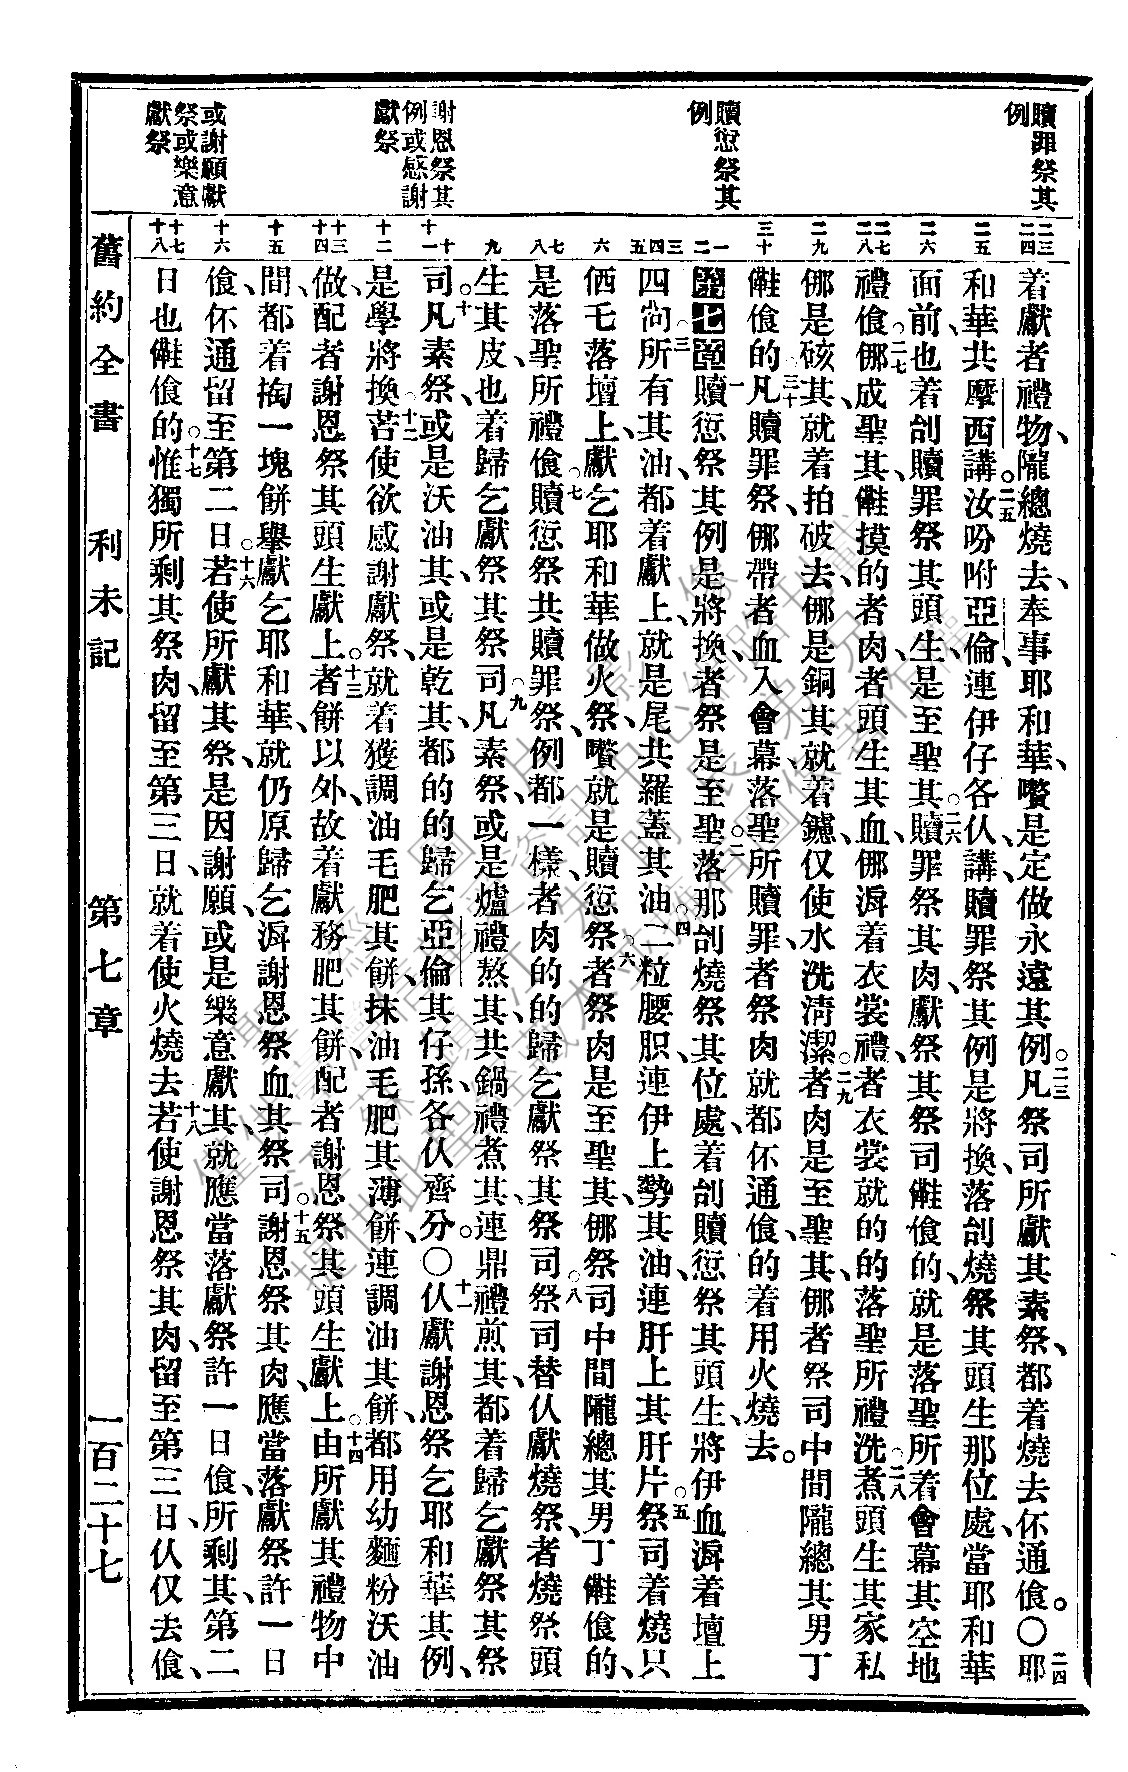 贖罪祭其
例
贖愆祭其
例
謝恩祭其
例或感謝
獻祭
或謝願獻
祭或樂意
獻祭
着獻者禮物隴總燒去、奉事耶和華、嚽是定做永遠其例。二三凡祭司所獻其素祭、都着燒去伓通食。○二四耶
和華共摩西講、二五汝吩咐亞倫連伊仔各仈講、贖罪祭其例是將換、落刣燒祭其頭生那位處、當耶和華
面前也着刣贖罪祭其頭生、是至聖其。二六贖罪祭其肉、獻祭其祭司㑚食的、就是落聖所着會幕其空地
禮食。二七㑚成聖其、㑚摸的者肉、者頭生其血、㑚滒着衣裳禮、者衣裳就的的落聖所禮洗。二八煮頭生其家私
㑚是硋其、就着拍破去、㑚是銅其、就着鑢、仅使水洗清潔。二九者肉是至聖其、㑚者祭司中間隴總其男丁
㑚食的。三十凡贖罪祭、㑚帶者血入會幕落聖所贖罪、者祭肉就都伓通食的、着用火燒去。
第七章 一贖愆祭其例是將換、者祭是至聖。二落那刣燒祭其位處、着刣贖愆祭其頭生、將伊血滒着壇上
四向。三所有其油、都着獻上、就是尾共羅蓋其油。四二粒腰䏔、連伊上勢其油、連肝上其肝片。五祭司着燒只
㑚乇落壇上、獻乞耶和華做火祭、嚽就是贖愆祭。六者祭肉是至聖其、㑚祭司中間隴總其男丁㑚食的、
是落聖所禮食。七贖愆祭共贖罪祭、例都一樣、者肉的的歸乞獻祭其祭司。八祭司替仈獻燒祭、者燒祭頭
生其皮、也着歸乞獻祭其祭司。九凡素祭、或是爐禮熬其、共鍋禮煮其、連鼎禮煎其、都着歸乞獻祭其祭
司。十凡素祭、或是沃油其、或是乾其、都的的歸乞亞倫其仔孫、各仈齊分。○十一仈獻謝恩祭乞耶和華、其例
是學將換。十二若使欲感謝獻祭、就着獲調油毛肥其餅、抹油毛肥其薄餅、連調油其餅、都用幼麵粉沃油
做、配者謝恩祭其頭生獻上。十三者餅以外、故着獻務肥其餅、配者謝恩祭其頭生獻上。十四由所獻其禮物中
間、都着掏一塊餅舉獻乞耶和華、就仍原歸乞滒謝恩祭血其祭司。十五謝恩祭其肉、應當落獻祭許一日
食、伓通留至第二日。十六若使所獻其祭、是因謝願、或是樂意獻其、就應當落獻祭許一日食、所剩其第二
日也㑚食的。十七惟獨所剩其祭肉、留至第三日、就着使火燒去。十八若使謝恩祭其肉、留至第三日、仈仅去食、
舊約全書 利未記 第七章 一百二十七